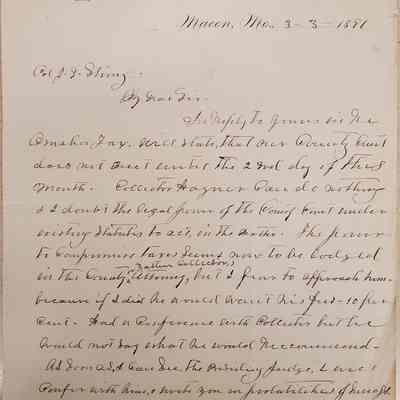 Macon, Mo., 3-3-1891
Col J. F.
My Dear Sir.
In Reply to yours in the
Omaha Tax. Will State, that our County Court
does not meet until the 2 day of this
Month. Collector can do nothing
& I doubt the legal power of the County Court under
existing Statutes to act, in the matter. The power
to Compromise taxes seems now to be lodged
in the County Attorney, but I fear to approach him
because if I did he would want his fees - 10 per
cent. Had a Conference with Collector but he
would not say what he would Recommend -
As soon as I can see the Presiding Judge, I will
Confer with him, & write you in probabilities of